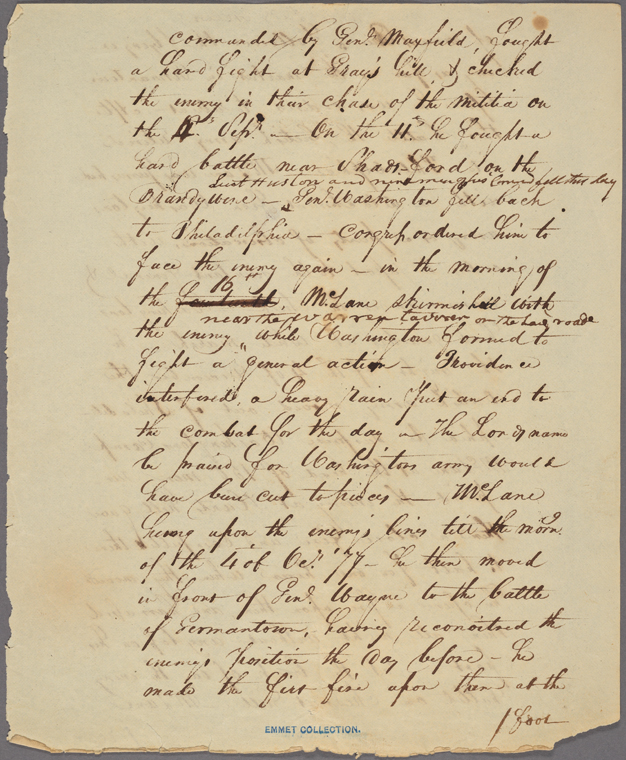 commanded by Genl. Maxfield, fought
a hard fight at Gray's hill & checked
the enemy in their chase of the militia on
the 4th. Sepr. — On the 11th. he fought a
hard battle near Shads-ford on the
Lieut Huston and nine men fell this day
Brandywine — Genl. Washington fell back
to Philadelphia — Congress ordered him to
face the enemy again — in the morning of
16th
the , McLane skirmished with
near the warren tavern on the road
the enemy while Washington formed to
fight a general action — Providence
interfered, a heavy rain put an end to
the combat for the day — The Lords name
be praised for Washingtons army would
have been cut to pieces — McLane
hung upon the enemys lines till the morng.
of the 4 of Oct. '77 — he then moved
in front of Genl. Wayne to the battle
of Germantown, having reconoitred the
enemys position the day before — he
made the first fire upon them at the
foot
EMMET COLLECTION.